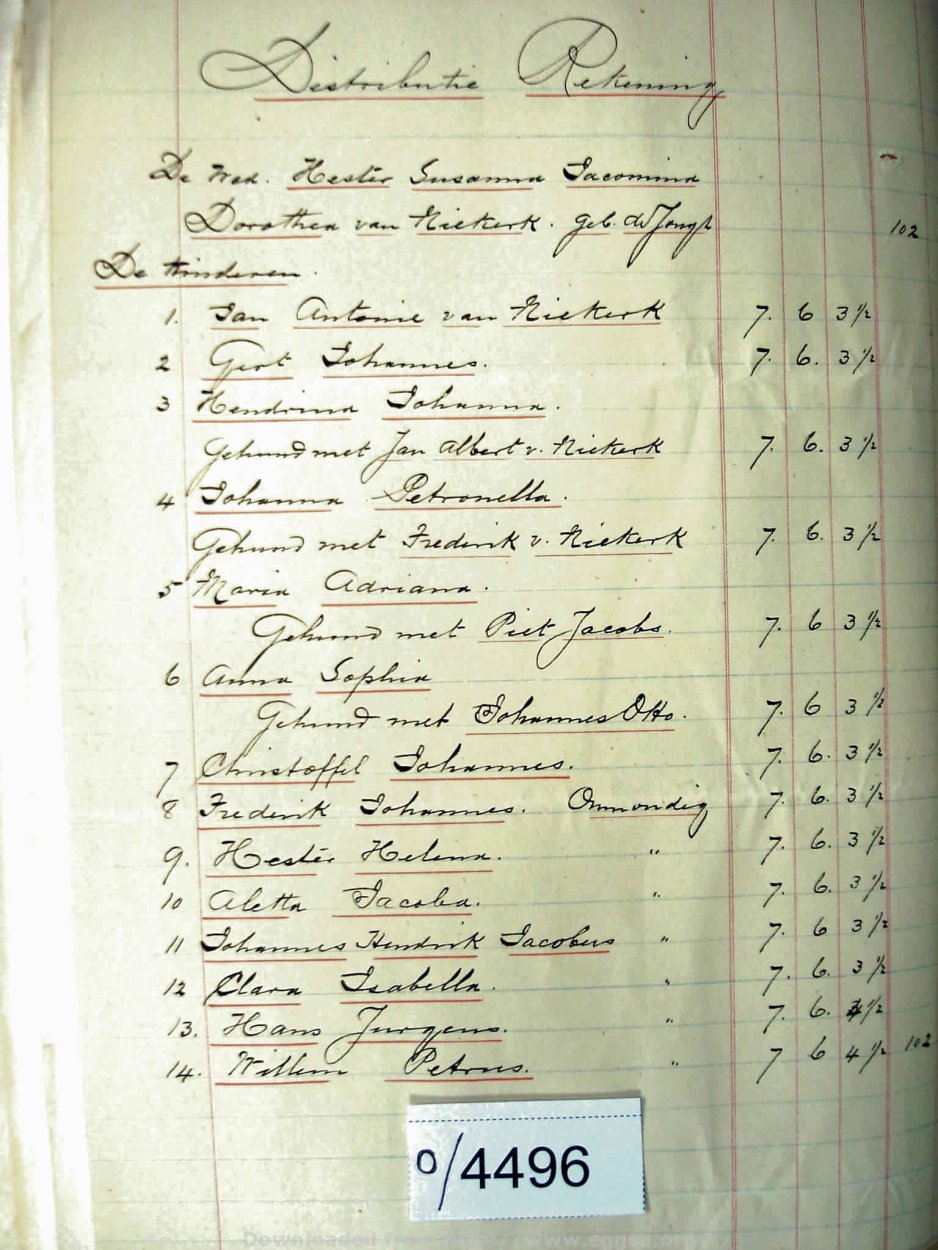 Distributie Rekening
De Wed. Hester Susanna Jacomina
Dorothea van Niekerk. geb. de Jongh 102
De Kinderen.
1. Jan Antonie van Niekerk 7. 6 3½
2 Gert Johannes. 7. 6. 3½
3 Hendrina Johanna.
Gehuwd met Jan Albert v. Niekerk 7. 6. 3½
4 Johanna Petronella.
Gehuwd met Frederik v. Niekerk 7. 6. 3½
5 Maria Adriana.
Gehuwd met Piet Jacobs. 7. 6 3½
6 Anna Sophia
Gehuwd met Johannes Otto. 7. 6 3½
7 Christoffel Johannes. 7. 6. 3½
8 Frederik Johannes. Onmondig 7. 6. 3½
9. Hester Helena. " 7. 6. 3½
10 Aletta Jacoba. " 7. 6. 3½
11 Johannes Hendrik Jacobus " 7. 6 3½
12 Clara Isabella. " 7. 6. 3½
13. Hans Jurgens. " 7. 6. ½
14. Willem Petrus. " 7 6 4½ 102
0/4496